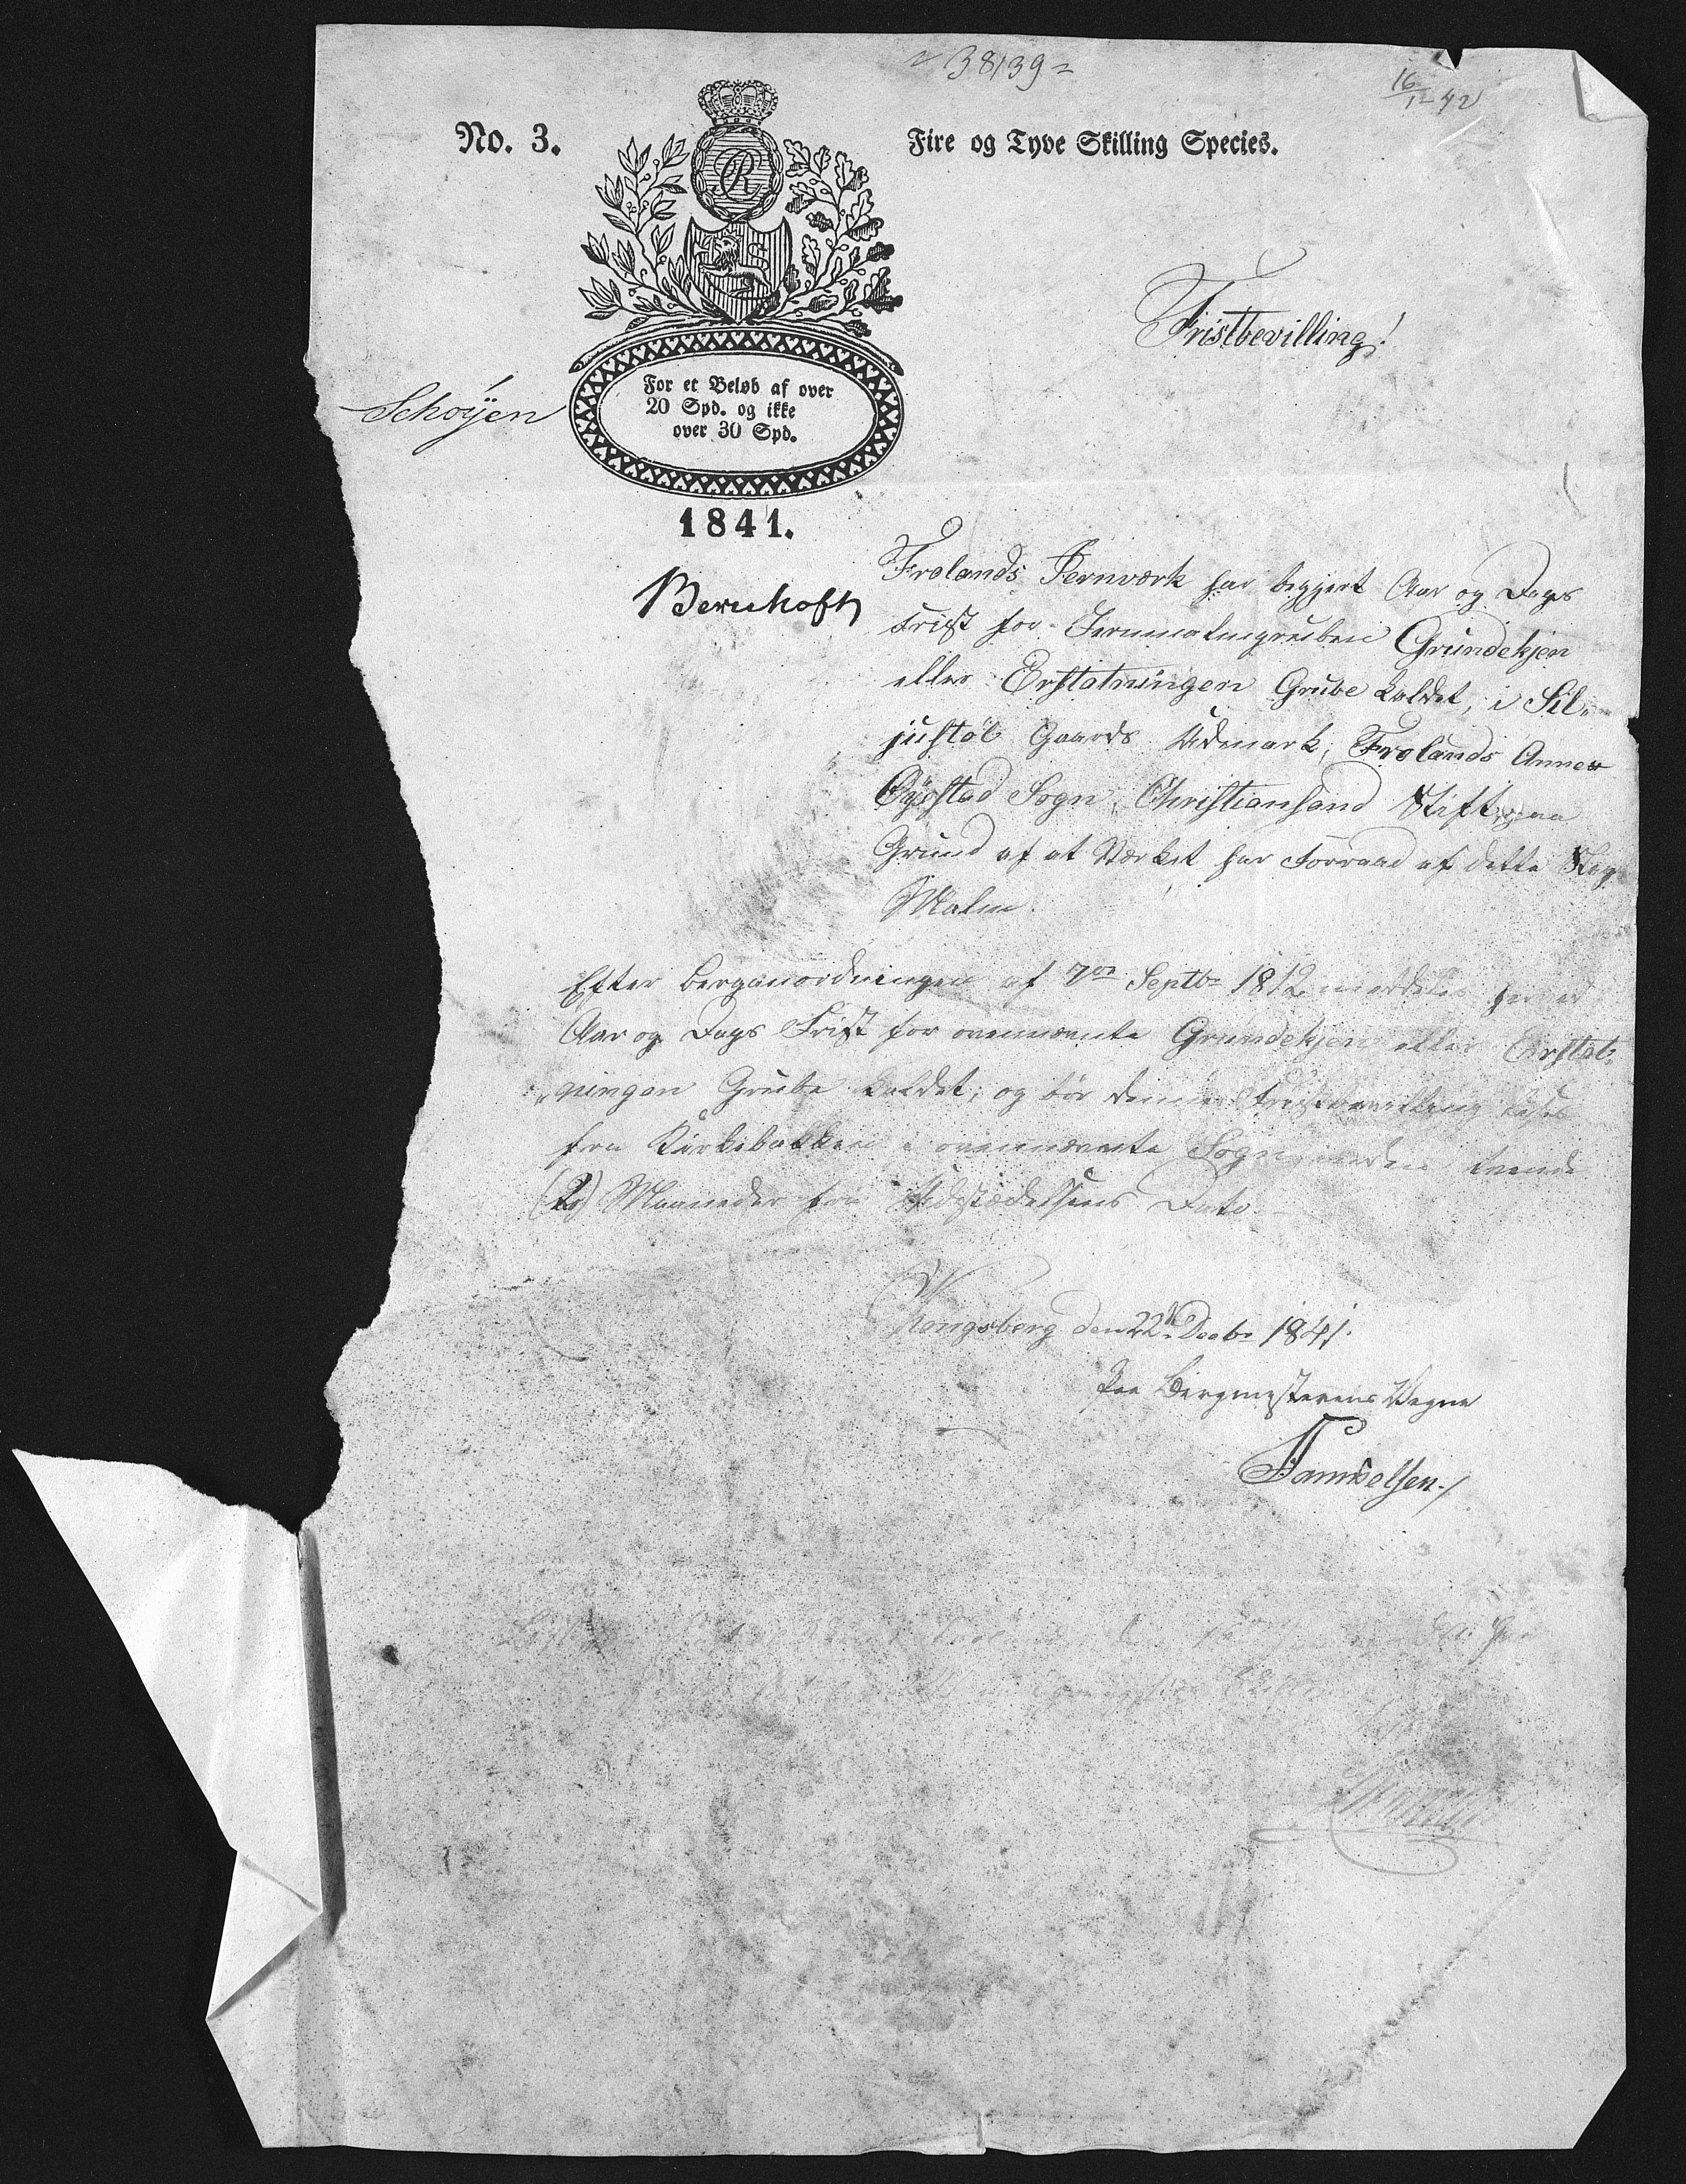 38139
16/1 42
No. 3.
Fire og Tyve Skilling Species.
Fristbevilling!
For et Beløb af over
20 Spd. og ikke
over 30 Spd.
Schøyen
1841.
Frolands Jernværk har begjert Aar og Dags
Frist for Jernmalmgruben Grundekjen
eller Erstatningen Grube kaldet, i Sil-
justøl Gaards Udmark, Frolands Annex
Øyestad Sogn, Christiansand Stift, paa
Grund af at Værket har Forraad af dette Slags
Malm.
Efter Berganordningen af 7de Septbr 1812 meddeles herved
Aar og Dags Frist for ovennævnte Grundekjen eller Erstat-
ningen Grube kaldet; og bør denne Fristbevilling læses
fra Kirkebakken i ovennævnte Sogn inden tvende
(2) Maaneder fra Udstædelsens Dato.
Kongsberg den 22de Decbr 1841.
Paa Bergmesterens Vegne
Samuelsen